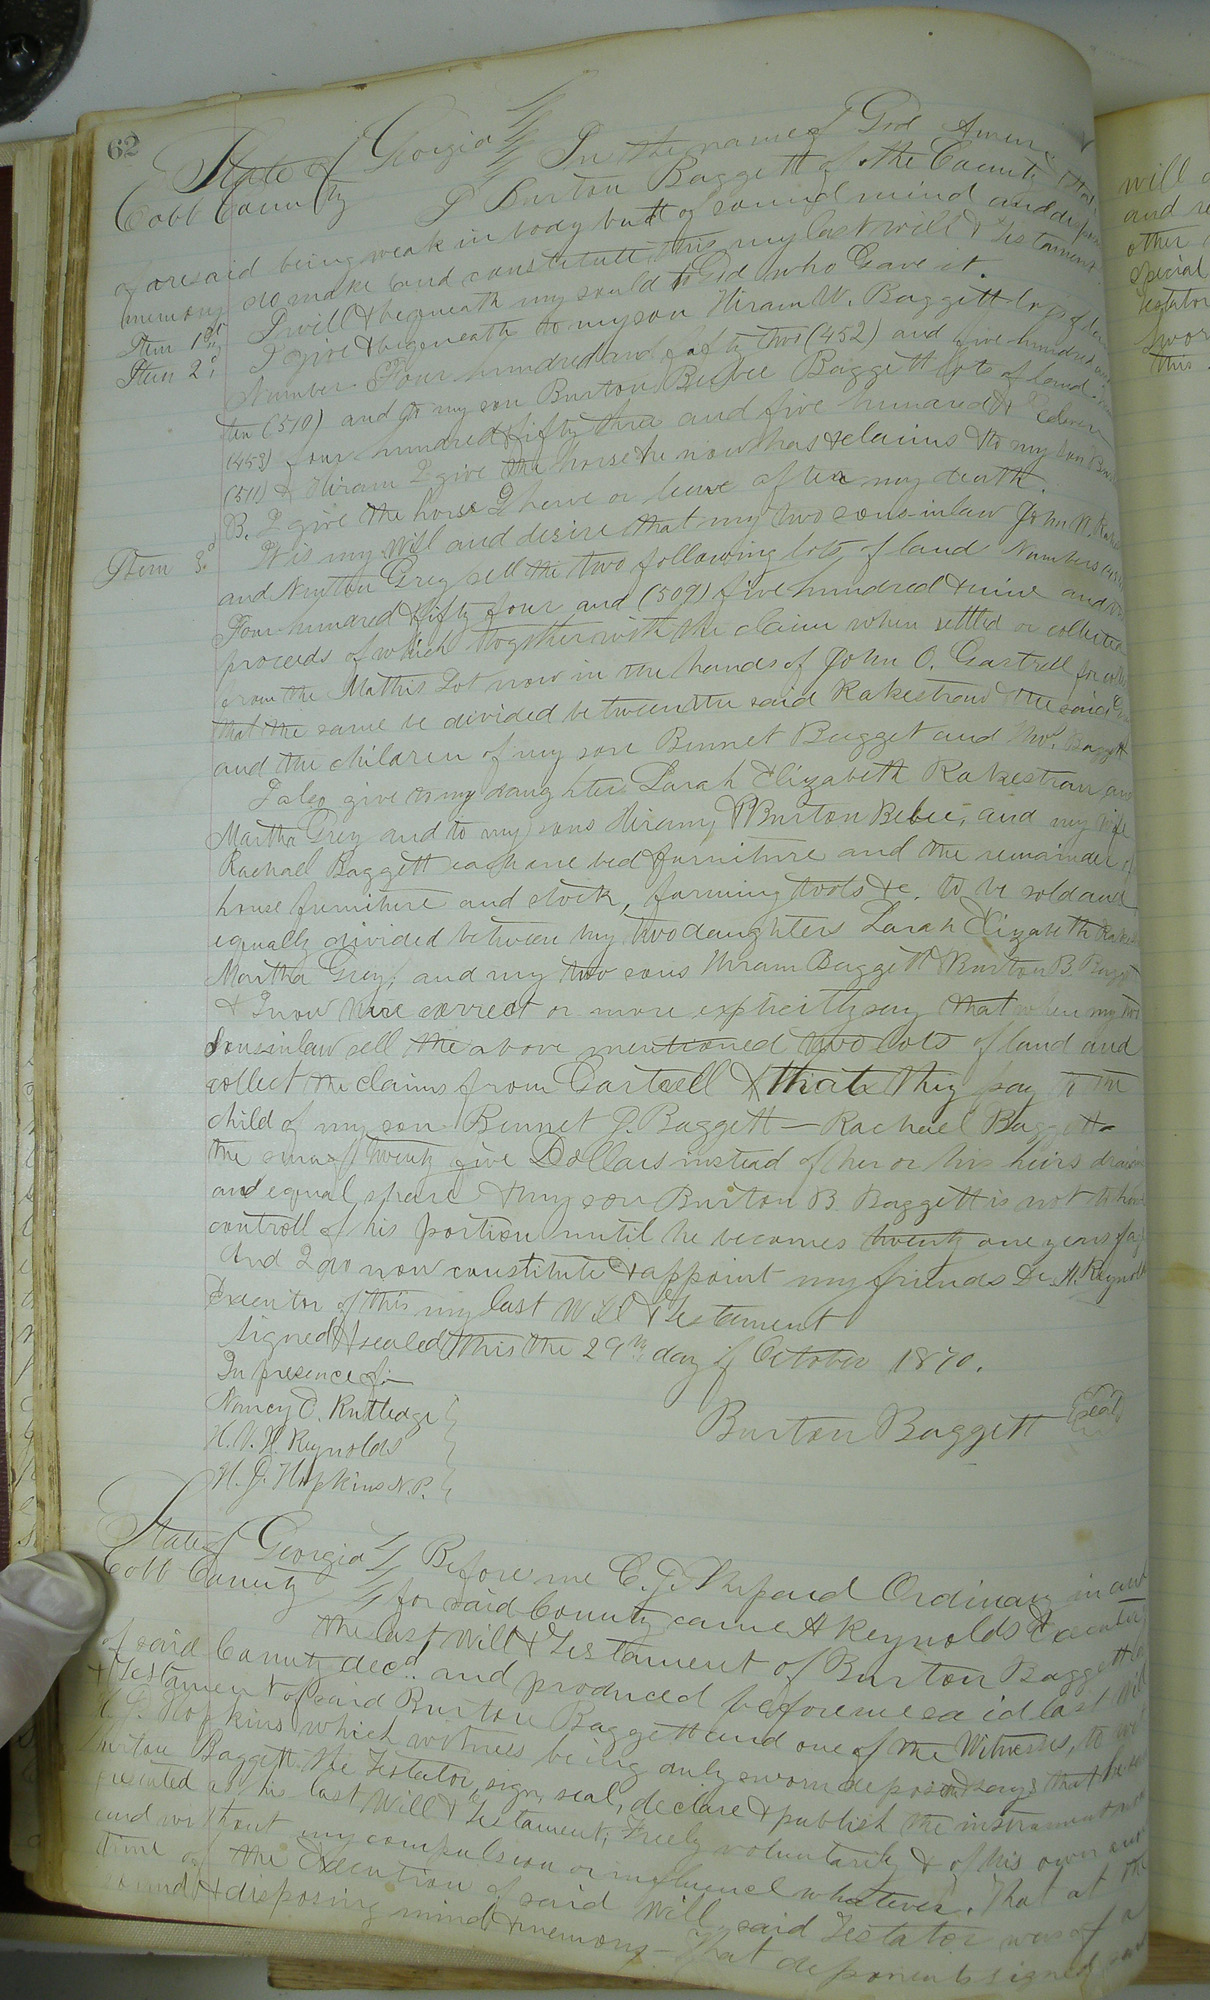 62
State of Georgia In the name of God Amen
Cobb County I Burton Baggett of the County
aforesaid being weak in body butt of sound mind and
memory do make and constitute this my last will & Testament
Item 1st I will & bequeath my sould to God who Gave it.
Item 2d I give & bequeath to my son Hiram W. Baggett lots of
Number Four hundred and fifty two (452) and five hundred and
ten (510) and to my son Burton Beebee Baggett lots of land
(453) four hundred & fifty three and five hundred & Eleven
(511) & Hiram I give the horse he now has & claims & to my son
B. I give the horse I have or leave after my death.
Item 3d It is my Will and desire that my two sons-in law John W.
and Newton Grey sell the two following lots of land Numbers
Four hundred & fifty four and (509) five hundred & nine and
proceeds of which together with the claim when settled or collected
from the Mathis Lot now in the hands of John O. Gartrell
that the same be divided between the said Rakestraw & the said
and the children of my son Bennet Bagget and Thos. Baggett
I also give to my daughter Sarah Elizabeth Rakestraw and
Martha Grey and to my sons Hiram, & Burton Bebee, and my wife
Rachael Baggett each one bed & furniture and the remainder of
house furniture and stock, farming tools &c. to be sold and
equally divided between my two daughters Sarah Elizabeth
Martha Grey, and my two sons Hiram Baggett & Burton B. Baggett
& I now here correct or more explicitly say that when my two
Sons in law sell the above mentioned two lots of land and
collect the claims from Gartrell & that they pay to the
child of my son Bennet J. Baggett — Rachael Baggett
the sum of twenty five Dollars instead of her or his heirs
and equal share & my son Burton B. Baggett is not to have
controll of his portion until he becomes twenty one years of age
And I do now constitute & appoint my friends Dr. H. Reynolds
Executor of this my last Will & Testament
Signed & sealed this the 29th day of October 1870.
In presence of—
Nancy C. Rutledge
H. V. H. Reynolds Burton Baggett Seal
H. J. Hopkins N.P.
State of Georgia Before me C. J. Shepard Ordinary in and
Cobb County for said County came H Reynolds Executor
the last Will & Testament of Burton Baggett
of said County decd. and produced before me said last Will
& Testament of said Burton Baggett and one of the Witnesses, to wit
Hopkins which witness being duly sworn deposes & says that he
Burton Baggett the Testator, sign, seal, declare & publish the instrument
presented as his last Will & Testament, freely voluntarily & of his own
and without any compulsion or influence whatever. That at the
time of the Execution of said Will said Testator was of
sound & disposing mind & memory — That deponent signed
will
and
other
special
Testator
Swor
this